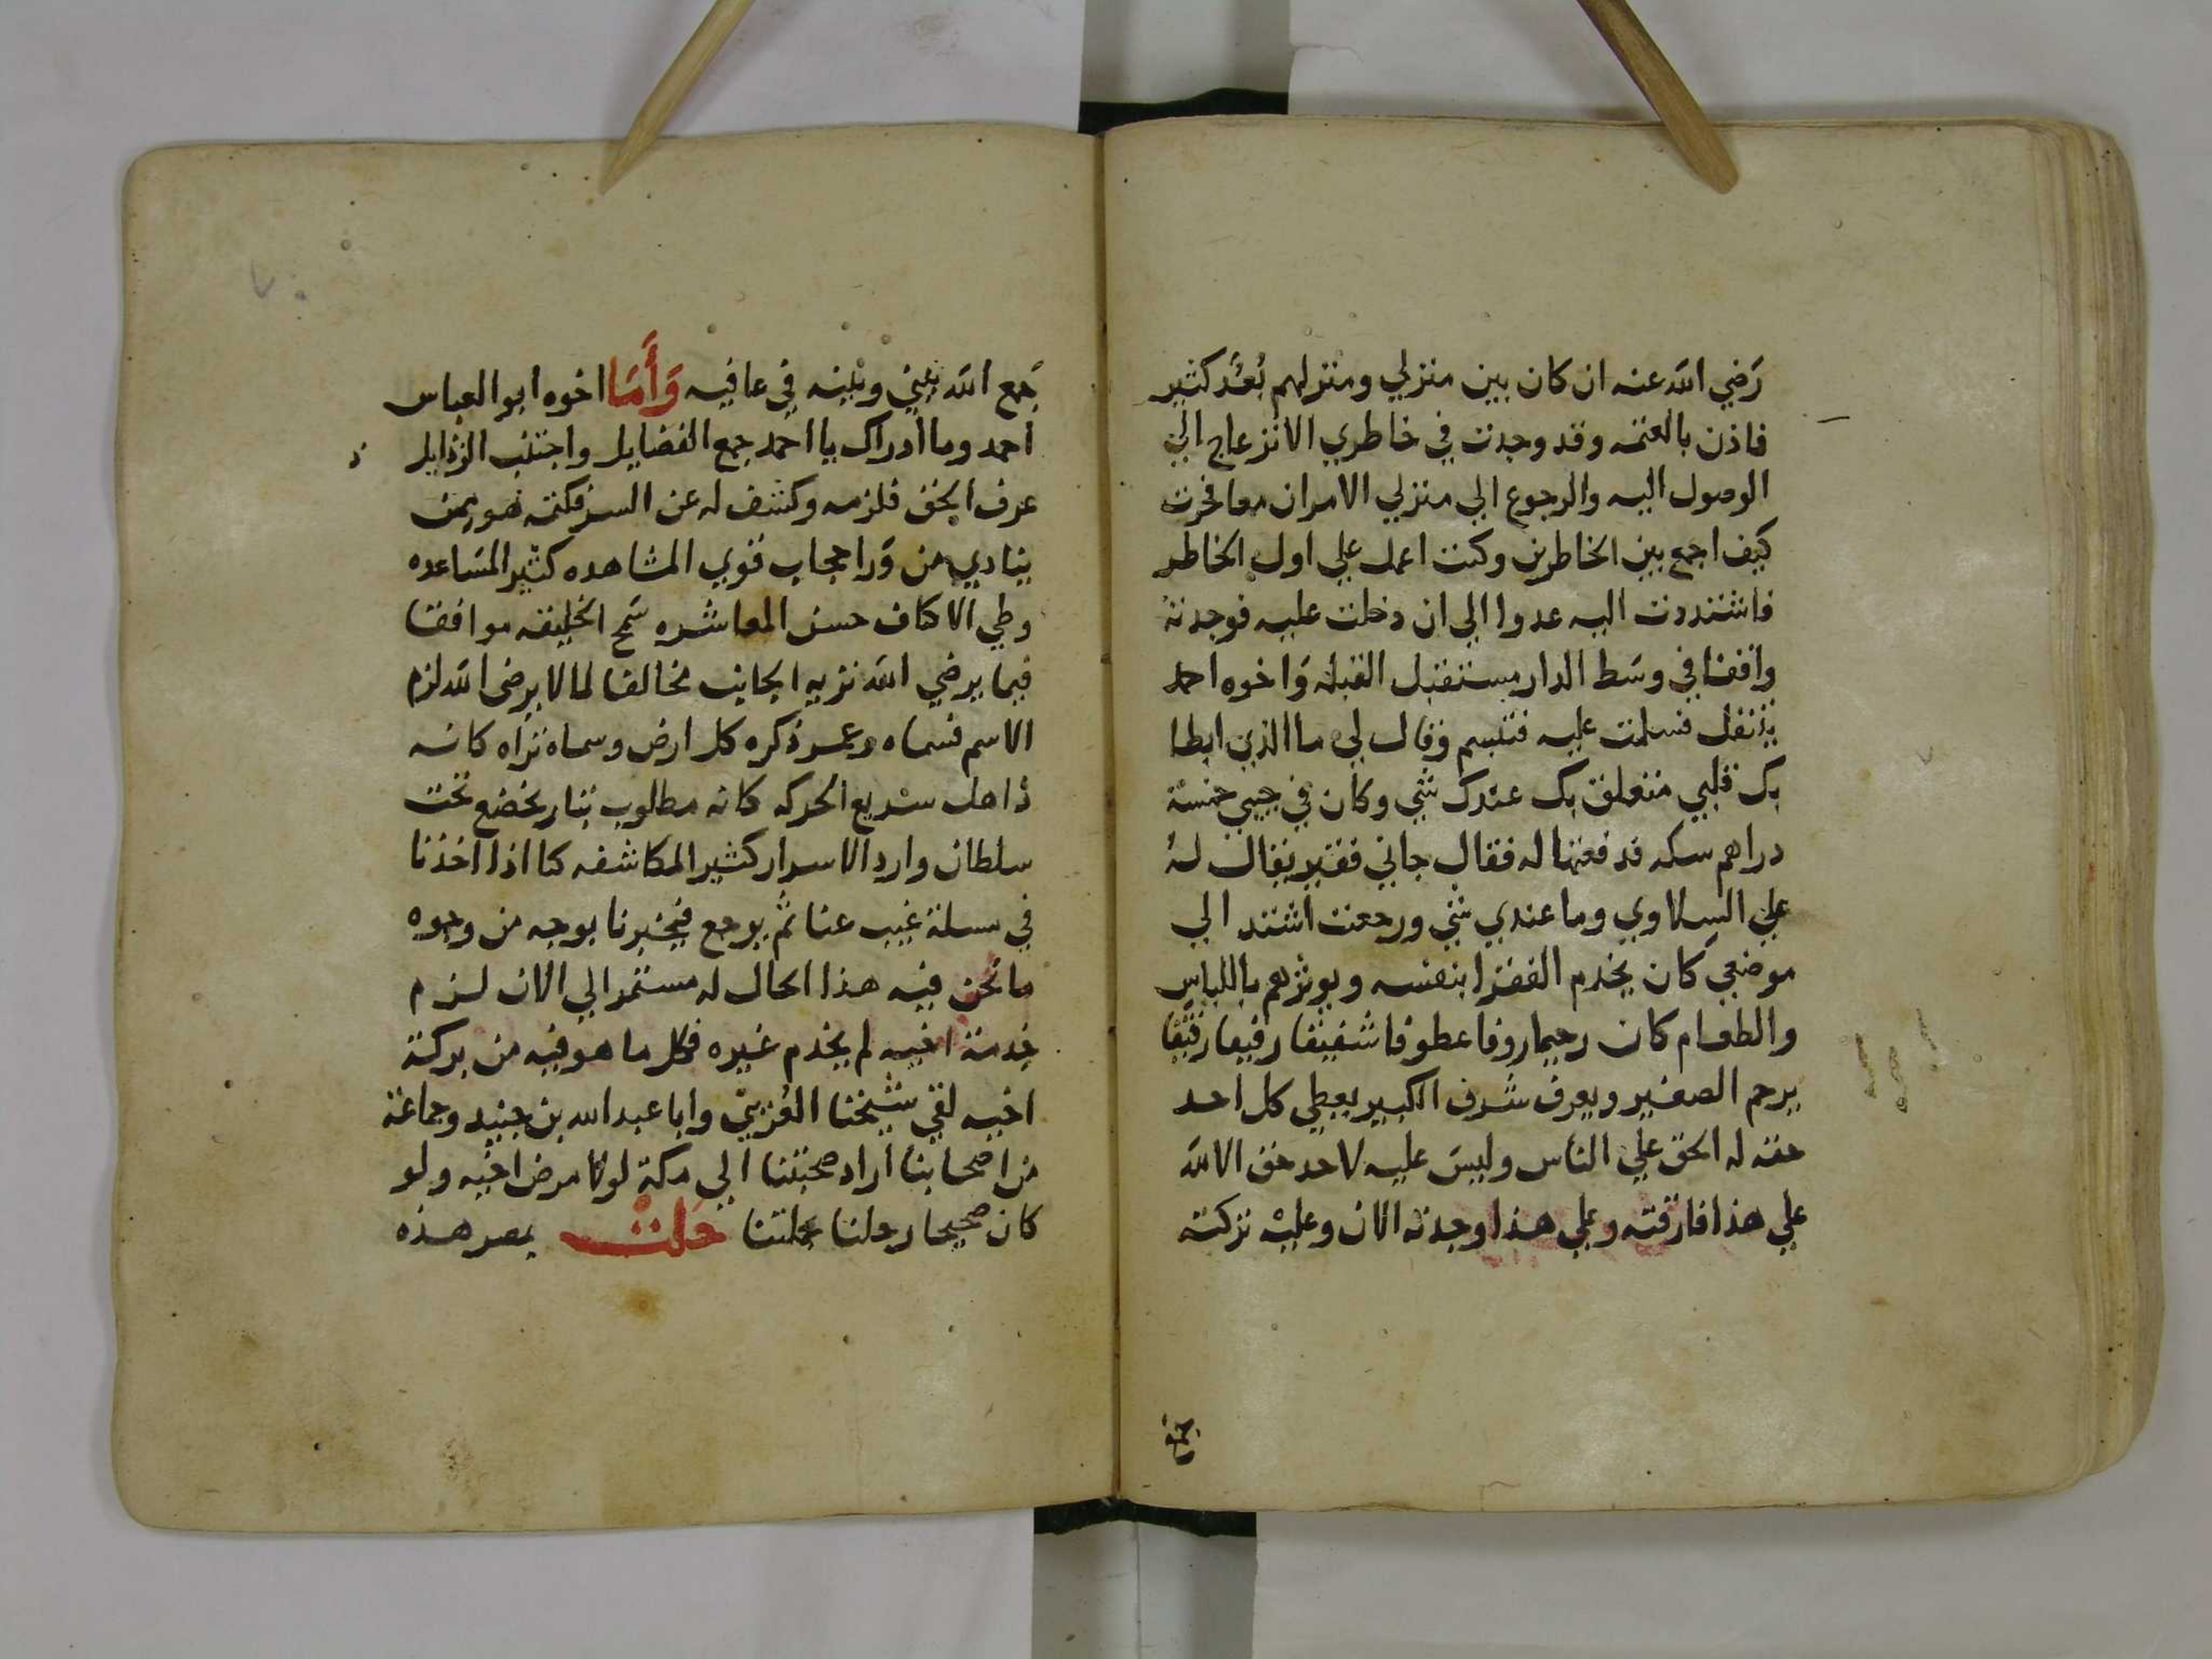 رَضي الله عنه ان كان بين منزلي ومنزلهم بُعدُ كثير
فاذن بالعتمه وقد وجدت في خاطري الانزعاج الي
الوصول اليه والرجوع الي منزلي الامران معا فحرت
كيف اجمع بين الخاطرين وكنت اعمل علي اول الخاطر
فاشتددت اليه عدوا الي ان دخلت عليه فوجدته
واقفا في وسَط الدار مستقبل القبله وَاخوه احمد
يتنفل فسلمت عليه فتبسم وقال لي ما الذي ابطا
بك قلبي متعلق بك عندك شي وكان في جيبي خمسة
دراهم سكه فدفعتها له فقال جاني فقير يقال لهُ
علي السلاوي وما عندي شي ورجعت اشتد الي
موضعي كان يخدم الفقرا بنفسه ويوثرهم باللباس
والطعام كان رحيما روفا عطوفا شفيقا رفيقا رقيقا
يرحم الصغير ويعرف شرف الكبير يعطي كل احد
حقه له الحق علي الناس وليسَ عليه لاحد حق الا لله
علي هذا فارقته وعلي هذا وجدته الان وعليه تركته
جمع
جَمع الله بيني وبينه في عافيه وَأَمَا اخوه ابو العباس
احمد وما ادراك يا احمد جمع الفضايل واجتنب الرذايل
عرف الحق فلزمه وكشف له عن السر فكتمه فهو ممن
ينادي من وَرا حجاب قوي المشاهده كثير المسَاعده
وطي الاكاف حسن المعاشره سَمح الخليقه موافقا
فيما يرضي الله نزيه الجانب مخالفا لما لا يرضى الله لزم
الاسم فسماه وعمر ذكره كل ارض وسماه تراه كانه
ذاهل سريع الحركه كانه مطلوب بثار يخضع تحت
سلطان وارد الاسرار كثير المكاشفه كنا اذا اخذنا
في مسلة غيب عنا ثُم يرجع فيخبرنا بوجه من وجوه
ما نحن فيه هذا الحال له مستمر الي الان لزم
خدمة اخيه لم يخدم غيره فكل ما هو فيه من بركة
اخيه لقي شيخنا العُريبي وابا عبد الله بن جنيد وجماعة
من اصحابنا اراد صحبتنا الي مكة لولا مرض اخيه ولو
كان صحيحا رحلنا بجملتنا حَلت بمصر هذه